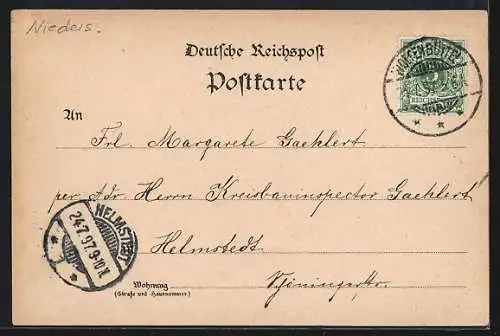 Nieders.
Deutsche Reichspost
Postkarte
WOLFENBÜTTEL
An
Frl. Margarete Gaehlert
per Adr. Herrn Kreisbauinspector Gaehlert
Helmstedt
HELMSTEDT
24.7.97.9-10N.
Wohnung
(Straße und Hausnummer)
Schöningerstr.